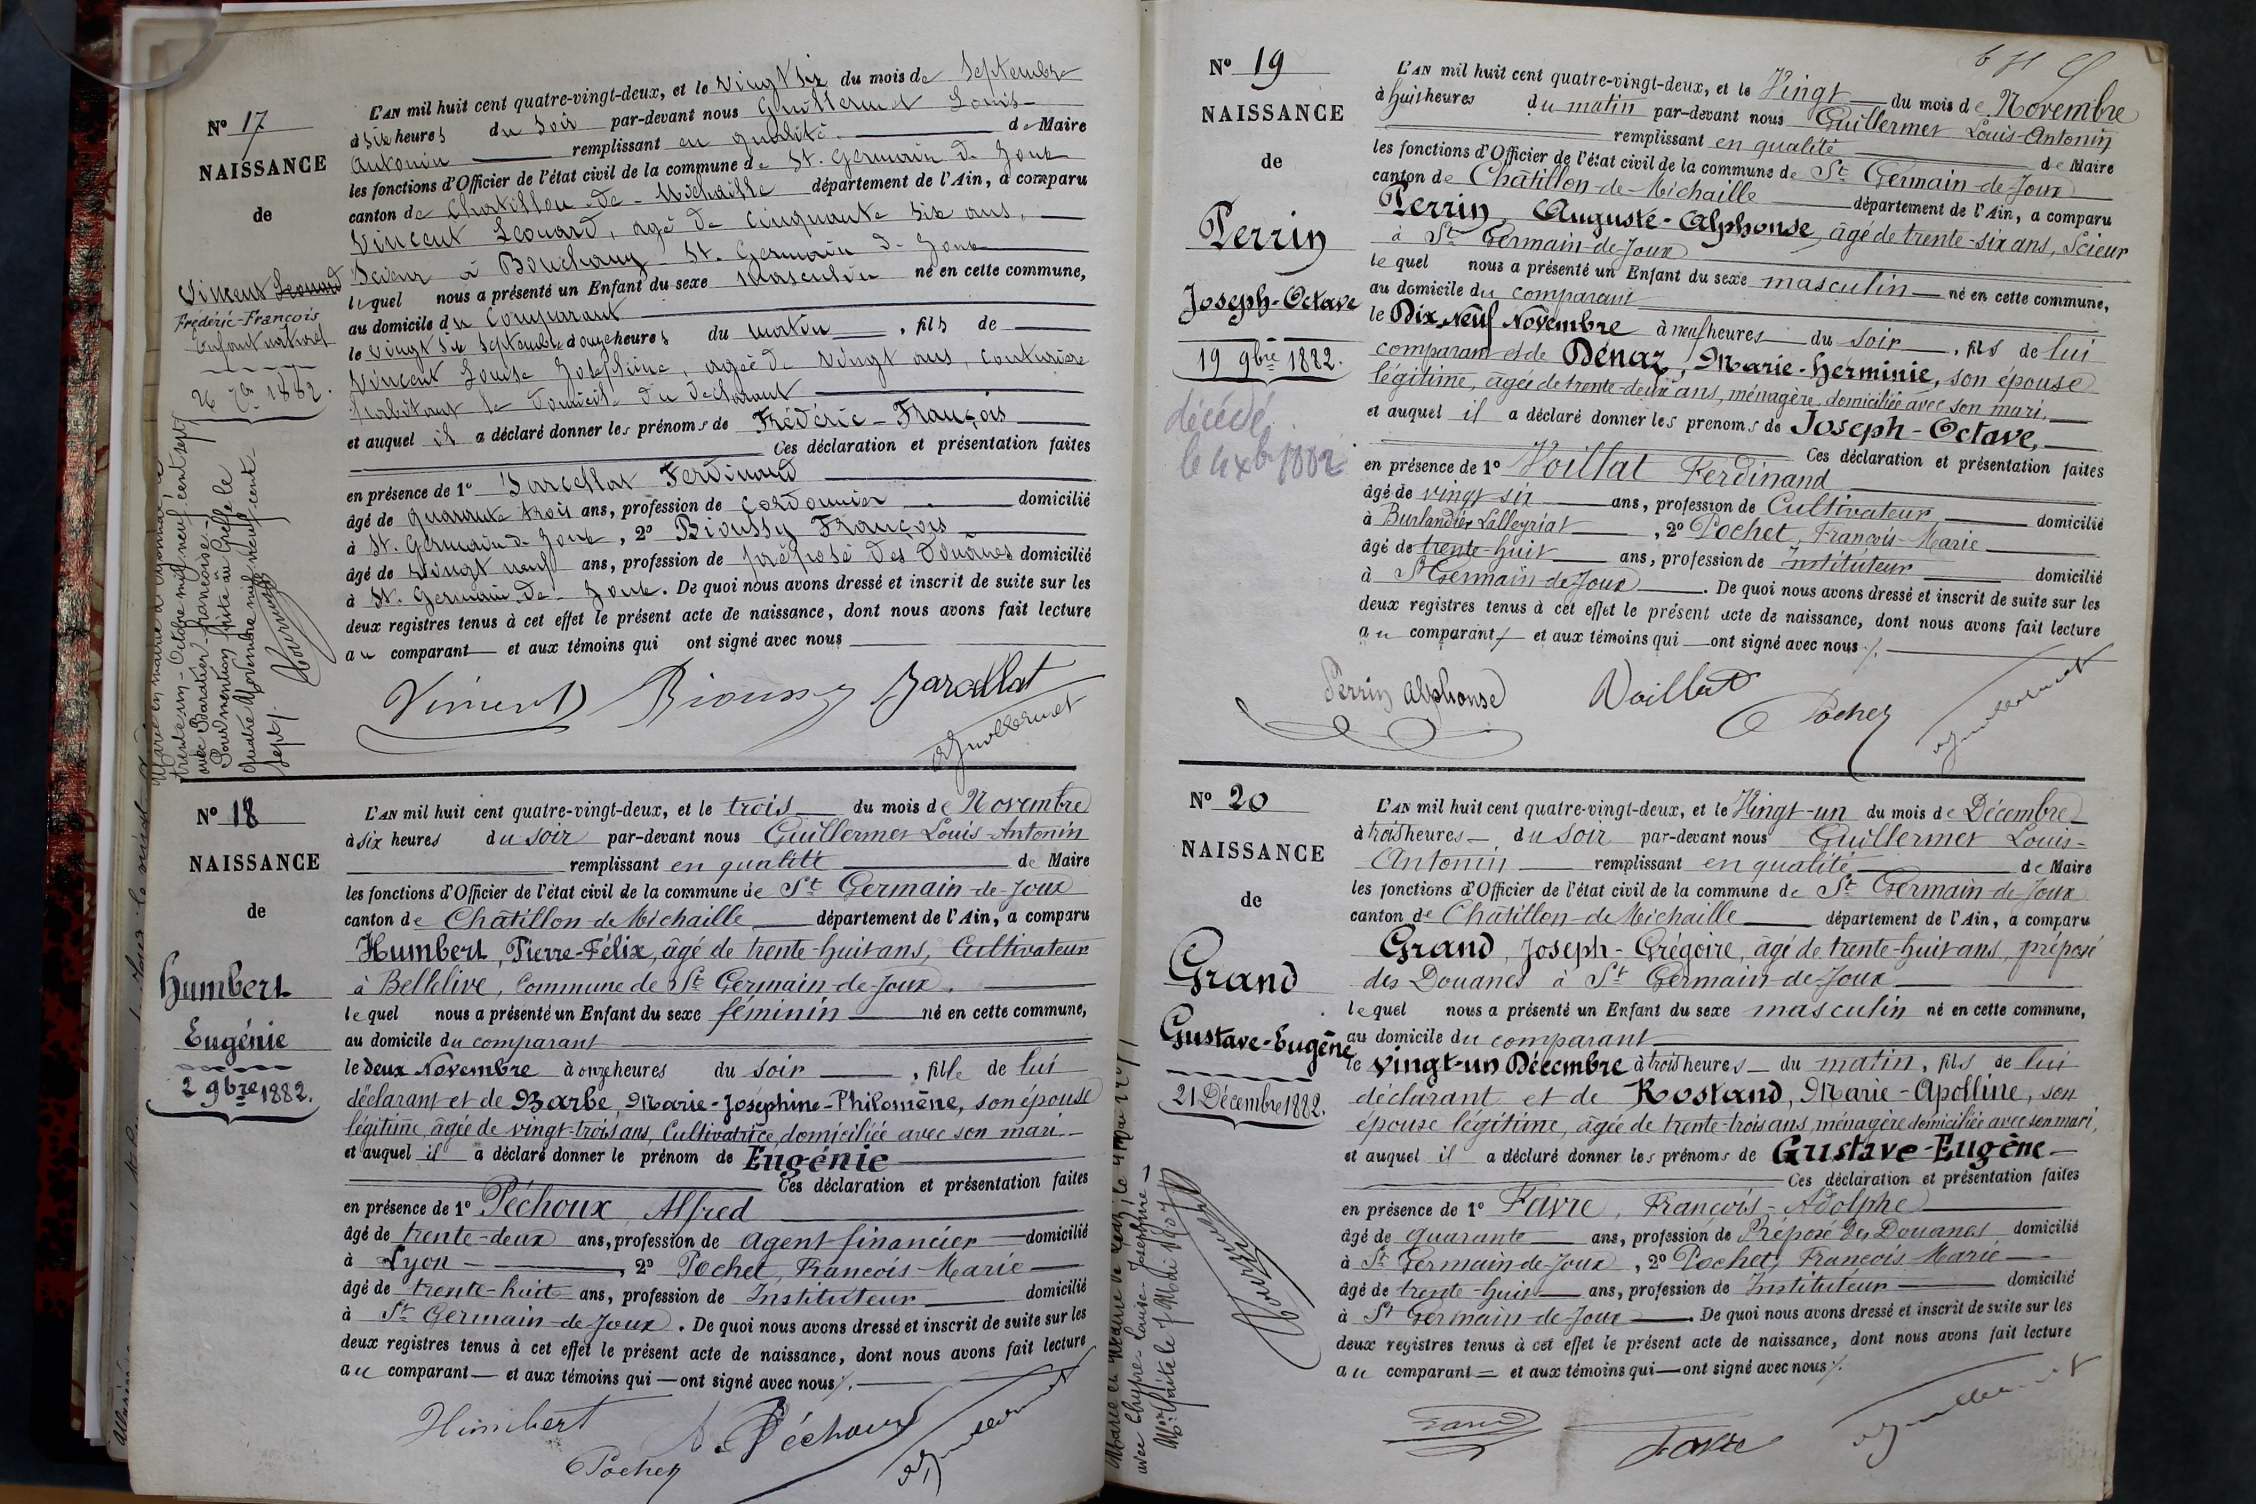 N° 17
NAISSANCE
de
Vincent Léonard
Frédéric-François
Enfant naturel
26 7bre 1882.
L'AN mil huit cent quatre-vingt-deux, et le vingt six du mois de Septembre
à six heures du soir par-devant nous Guillermet Louis-
Antonin remplissant en qualité de Maire
les fonctions d'Officier de l'état civil de la commune de St. Germain de Joux
canton de Chatillon-de-Michaille département de l'Ain, a comparu
Vincent Léonard, agé de cinquante six ans,
Scieur à Bouchany St. Germain de Joux
lequel nous a présenté un Enfant du sexe masculin né en cette commune,
au domicile du comparant
le vingt six Septembre à onze heures du matin, fils de
Vincent Louise Joséphine, agée de vingt ans, couturière
habitant le domicile du déclarant
et auquel il a déclaré donner les prénoms de Frédéric-François
Ces déclaration et présentation faites
en présence de 1° Barcellat Ferdinand
âgé de quarante trois ans, profession de cordonnier domicilié
à St. Germain de Joux, 2° Bioussy François
âgé de vingt neuf ans, profession de préposé des Douanes domicilié
à St. Germain-de-Joux. De quoi nous avons dressé et inscrit de suite sur les
deux registres tenus à cet effet le présent acte de naissance, dont nous avons fait lecture
au comparant et aux témoins qui ont signé avec nous
Vincent Bioussy Barcellat
Guillermet
trente un-Octobre mil neuf cent sept
avec Baratier, Françoise-
Pour mention faite au Greffe le
quatre Novembre mil neuf cent
sept.
N° 18
NAISSANCE
de
Humbert
Eugénie
2 9bre 1882.
L'AN mil huit cent quatre-vingt-deux, et le trois du mois de Novembre
à six heures du soir par-devant nous Guillermet Louis-Antonin
remplissant en qualité de Maire
les fonctions d'Officier de l'état civil de la commune de St Germain-de-Joux
canton de Châtillon-de-Michaille département de l'Ain, a comparu
Humbert, Pierre-Félix, âgé de trente-huit ans, Cultivateur
à Bellelive, Commune de St Germain-de-Joux.
lequel nous a présenté un Enfant du sexe féminin né en cette commune,
au domicile du comparant
le deux Novembre à onze heures du soir, fille de lui
déclarant et de Barbe, Marie-Joséphine-Philomène, son épouse
légitime, âgée de vingt-trois ans, Cultivatrice, domiciliée avec son mari.
et auquel il a déclaré donner le prénom de Eugénie
Ces déclaration et présentation faites
en présence de 1° Péchoux Alfred
âgé de trente-deux ans, profession de agent financier domicilié
à Lyon, 2° Pochet, François-Marie
âgé de trente-huit ans, profession de Instituteur domicilié
à St Germain-de-Joux. De quoi nous avons dressé et inscrit de suite sur les
deux registres tenus à cet effet le présent acte de naissance, dont nous avons fait lecture
au comparant et aux témoins qui ont signé avec nous.
Humbert A. Péchoux
Pochet Guillermet
N° 19
NAISSANCE
de
Perrin
Joseph-Octave
19 9bre 1882.
décédé
le
L'AN mil huit cent quatre-vingt-deux, et le Vingt du mois de Novembre
à huit heures du matin par-devant nous Guillermet Louis-Antonin
remplissant en qualité de Maire
les fonctions d'Officier de l'état civil de la commune de St Germain-de-Joux
canton de Châtillon-de-Michaille département de l'Ain, a comparu
Perrin, Auguste-Alphonse, âgé de trente-six ans, Scieur
à St Germain-de-Joux
lequel nous a présenté un Enfant du sexe masculin né en cette commune,
au domicile du comparant
le Dix Neuf Novembre à neuf heures du soir, fils de lui
comparant et de Dénaz, Marie-Herminie, son épouse
légitime, âgée de trente-deux ans, ménagère, domiciliée avec son mari.
et auquel il a déclaré donner les prénoms de Joseph-Octave,
Ces déclaration et présentation faites
en présence de 1° Voillat Ferdinand
âgé de vingt six ans, profession de Cultivateur domicilié
à Burlandier Lalleyriat, 2° Pochet, François-Marie
âgé de trente-huit ans, profession de Instituteur domicilié
à St Germain-de-Joux. De quoi nous avons dressé et inscrit de suite sur les
deux registres tenus à cet effet le présent acte de naissance, dont nous avons fait lecture
au comparant et aux témoins qui ont signé avec nous.
Perrin Alphonse Voillat Pochet Guillermet
N° 20
NAISSANCE
de
Grand
Gustave-Eugène
21 Décembre 1882.
L'AN mil huit cent quatre-vingt-deux, et le Vingt-un du mois de Décembre
à trois heures du soir par-devant nous Guillermet Louis-
Antonin remplissant en qualité de Maire
les fonctions d'Officier de l'état civil de la commune de St Germain-de-Joux
canton de Châtillon-de-Michaille département de l'Ain, a comparu
Grand, Joseph-Grégoire, âgé de trente-huit ans, préposé
des Douanes à St Germain-de-Joux
lequel nous a présenté un Enfant du sexe masculin né en cette commune,
au domicile du comparant
le vingt-un Décembre à trois heures du matin, fils de lui
déclarant et de Rostand, Marie-Apolline, son
épouse légitime, âgée de trente-trois ans, ménagère domiciliée avec son mari,
et auquel il a déclaré donner les prénoms de Gustave-Eugène
Ces déclaration et présentation faites
en présence de 1° Favre, François-Adolphe
âgé de quarante ans, profession de Préposé des Douanes domicilié
à St Germain-de-Joux, 2° Pochet, François-Marie
âgé de trente-huit ans, profession de Instituteur domicilié
à St Germain-de-Joux. De quoi nous avons dressé et inscrit de suite sur les
deux registres tenus à cet effet le présent acte de naissance, dont nous avons fait lecture
au comparant et aux témoins qui ont signé avec nous.
Grand Favre Guillermet